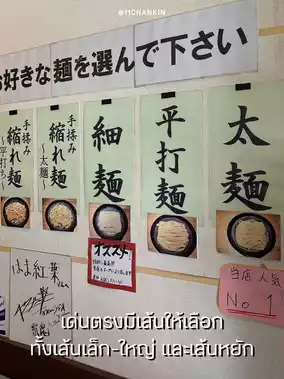 @11CHANKIN_
お好きな麺を選んで下さい
太麺
平打麺
細麺
手揉み
縮れ麺
～太麺～
手揉み
縮れ麺
～平打ち～
オススメ
当店人気
No 1
เด่นตรงมีเส้นให้เลือก
ทั้งเส้นเล็ก-ใหญ่ และเส้นหยัก